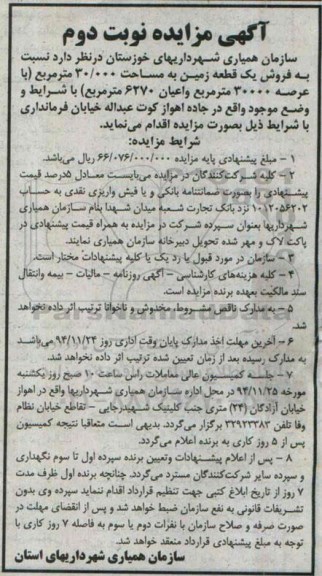 آگهی مزایده نوبت دوم
سازمان همیاری شهرداریهای خوزستان درنظر دارد نسبت
به فروش یک قطعه زمین به مساحت ۳۰/۰۰۰ مترمربع (با
عرصه ۳۰۰۰۰ مترمربع واعیان ۶۲۷۰ مترمربع) با شرایط و
وضع موجود واقع در جاده اهواز کوت عبداله خیابان فرمانداری
با شرایط ذیل بصورت مزایده اقدام می‌نماید.
شرایط مزایده:
۱ - مبلغ پیشنهادی پایه مزایده ۶۶/۰۷۶/۰۰۰/۰۰۰ ریال می‌باشد.
۲ - کلیه شرکت‌کنندگان در مزایده می‌بایست معادل ۵درصد قیمت
پیشنهادی را بصورت ضمانتنامه بانکی و یا فیش واریزی نقدی به حساب
۱۰۱۲۰۵۶۲۰۲ نزد بانک تجارت شعبه میدان شهدا بنام سازمان همیاری
شهرداریها بعنوان سپرده شرکت در مزایده به همراه قیمت پیشنهادی در
پاکت لاک و مهر شده تحویل دبیرخانه سازمان همیاری نمایند.
۳ - سازمان در مورد قبول یا رد یک یا کلیه پیشنهادات مختار است.
۴ - کلیه هزینه‌های کارشناسی - آگهی روزنامه - مالیات - بیمه وانتقال
سند مالکیت بعهده برنده مزایده است.
۵ - به مدارک ناقص مشروط، مخدوش و ناخوانا ترتیب اثر داده نخواهد
شد.
۶ - آخرین مهلت اخذ مدارک پایان وقت اداری روز ۹۴/۱۱/۲۴ می‌باشد
به مدارک رسیده بعد از زمان تعیین شده ترتیب اثر داده نخواهد شد.
۷ - جلسه کمیسیون عالی معاملات راس ساعت ۱۰ صبح روز یکشنبه
مورخه ۹۴/۱۱/۲۵ در محل اداره سازمان همیاری شهرداریها واقع در اهواز
خیابان آزادگان (۲۴) متری جنب کلینیک شهیدرجایی - تقاطع خیابان نظام
وفا تلفن ۳۲۹۲۳۳۸۳ برگزار می‌گردد. بدیهی است متعاقبا نتیجه کمیسیون
پس از ۵ روز کاری به برنده اعلام می‌گردد.
۸ - پس از اعلام پیشنهادات وتعیین برنده سپرده اول تا سوم نگهداری
و سپرده سایر شرکت‌کنندگان مسترد می‌گردد. چنانچه برنده اول ظرف مدت
۷ روز از تاریخ ابلاغ کتبی جهت تنظیم قرارداد اقدام ننماید سپرده وی بدون
تشریفات قانونی به نفع سازمان ضبط خواهد شد و پس از انقضای مهلت در
صورت صرفه و صلاح سازمان با نفرات دوم یا سوم به فاصله ۷ روز کاری با
توجه به مبلغ پیشنهادی قرارداد منعقد خواهد شد.
سازمان همیاری شهرداریهای استان